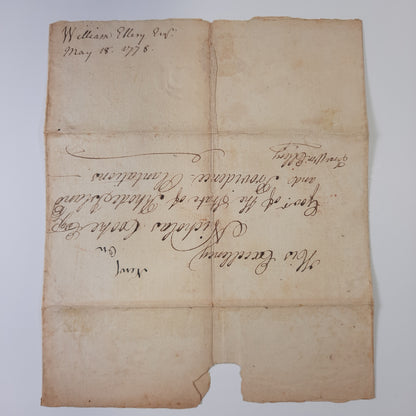 William Ellery Esqr.
May 18. 1778.
His Excellency
Nicholas Cooke Esqr
Govr. of the State of Rhode Island
and Providence Plantations
Wm. Ellery